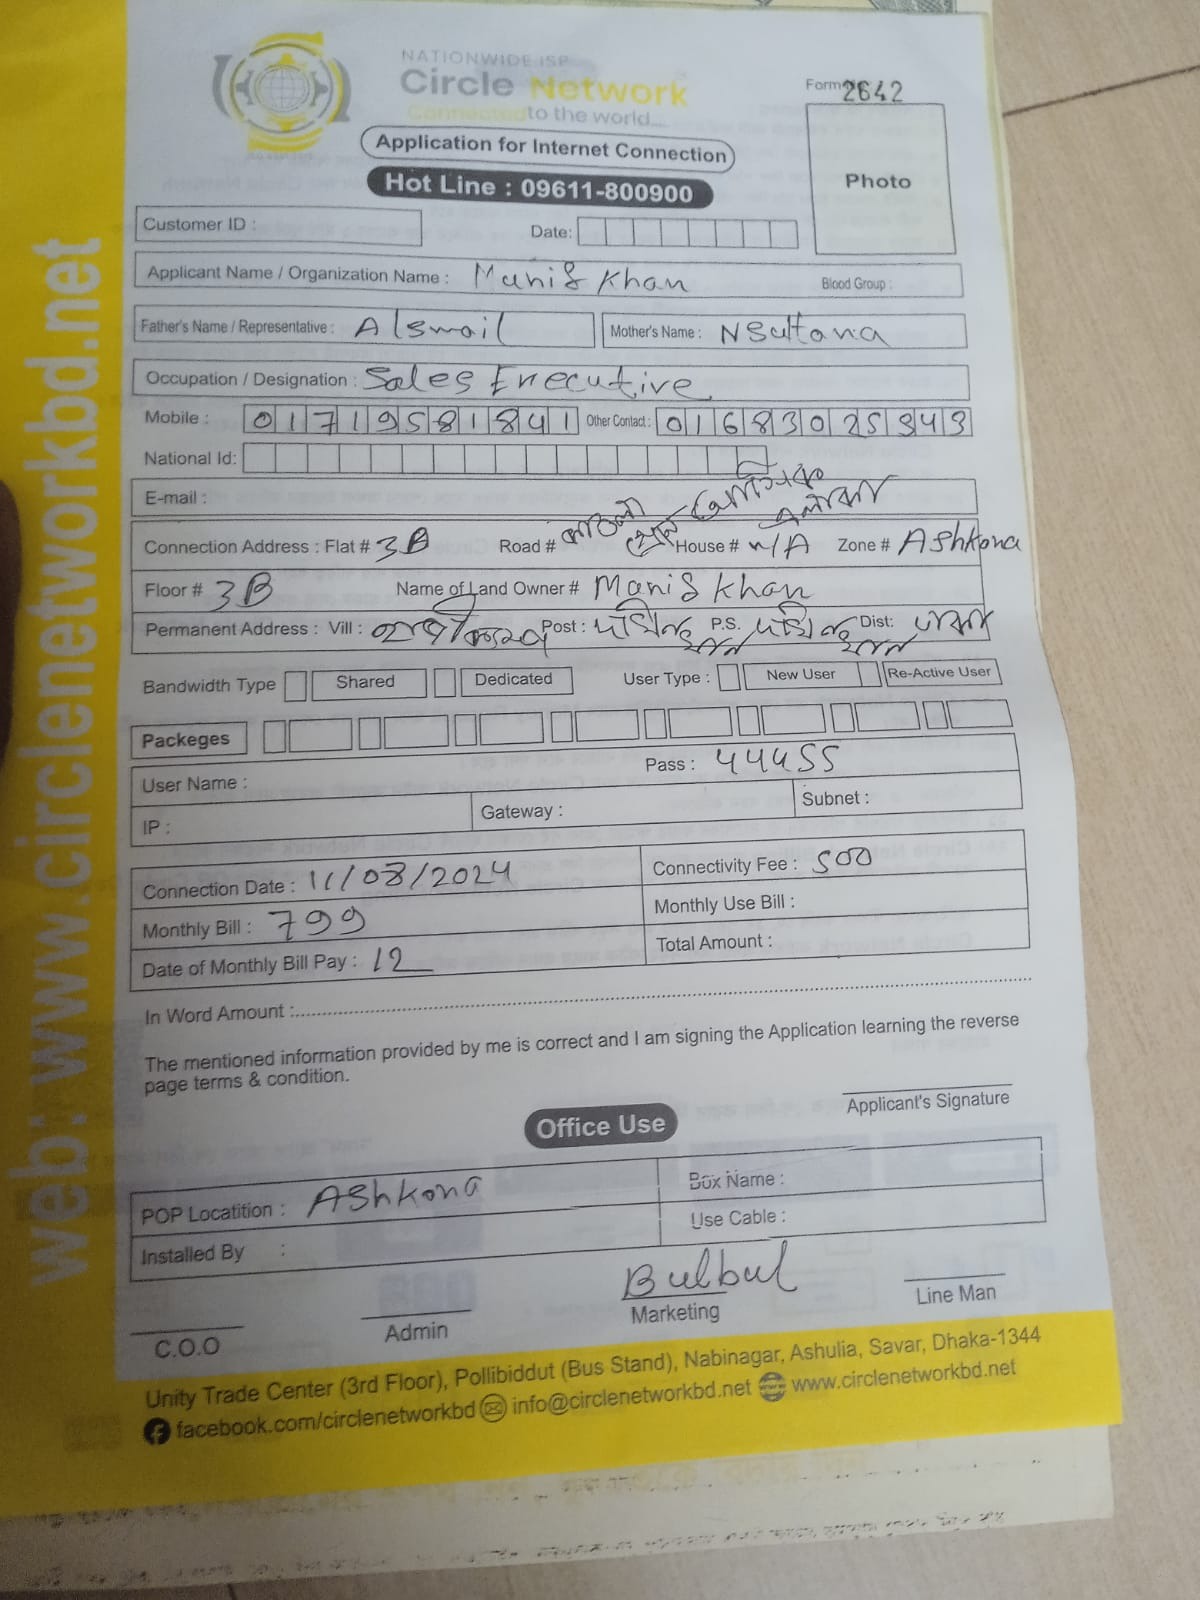 NATIONWIDE ISP
Circle Network
Connected to the world...
Form 2642
Application for Internet Connection
Photo
Hot Line : 09611-800900
Customer ID :
Date:
Applicant Name / Organization Name : Khan
Blood Group :
Father's Name / Representative : A Ismail
Mother's Name : N Sultana
Occupation / Designation : Sales Enecutive
Mobile : 01719581841 Other Contact : 01683025
National Id:
E-mail :
Connection Address : Flat # 3B Road # House # N/A Zone # Ashkona
Floor # 3B Name of Land Owner # Khan
Permanent Address : Vill : Post : P.S. Dist:
Bandwidth Type Shared Dedicated User Type : New User Re-Active User
Packeges
User Name : Pass :
IP : Gateway : Subnet :
Connection Date : 11/08/2024 Connectivity Fee : 500
Monthly Bill : 799 Monthly Use Bill :
Date of Monthly Bill Pay : 12 Total Amount :
In Word Amount :
The mentioned information provided by me is correct and I am signing the Application learning the reverse
page terms & condition.
Applicant's Signature
Office Use
POP Locatition : Ashkona Box Name :
Installed By : Use Cable :
Bulbul
C.O.O Admin Marketing Line Man
Unity Trade Center (3rd Floor), Pollibiddut (Bus Stand), Nabinagar, Ashulia, Savar, Dhaka-1344
facebook.com/circlenetworkbd info@circlenetworkbd.net www.circlenetworkbd.net
web: www.circlenetworkbd.net